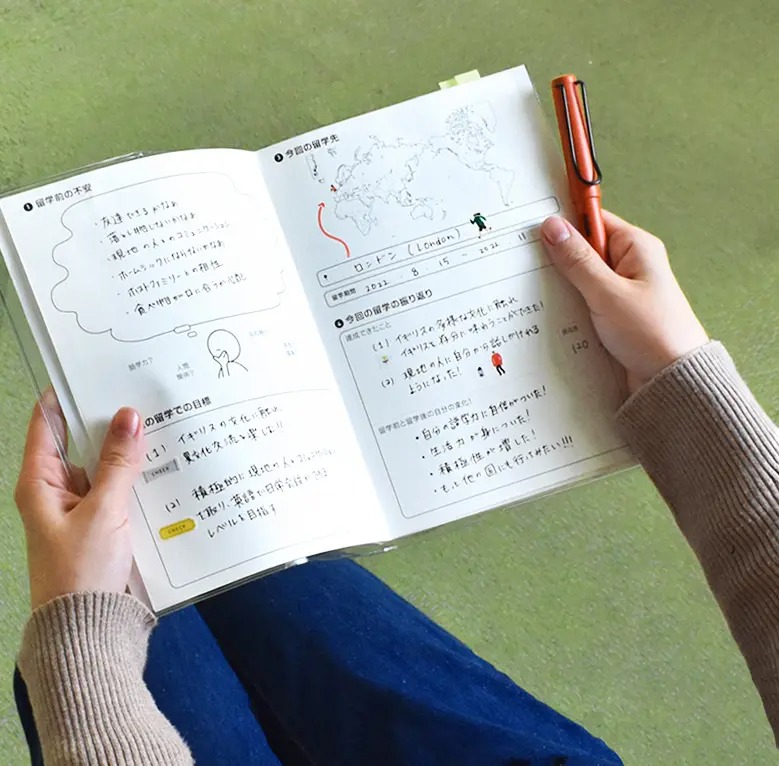 ❶ 留学前の不安
・友達できるかなぁ
・落とし物しないかなぁ
・現地の人とのコミュニケーション
・ホームシックにならないかなぁ
・ホストファミリーとの相性
・食べ物が口に合うか心配
語学力?
人間
関係?
の留学での目標
(1) イギリスの文化に触れ
異文化交流を楽しむ!!
CHECK
(2) 積極的に現地の人と
取り、英語で日常会話ができる
レベルを目指す
CHECK
❸ 今回の留学先
ロンドン (London)
留学期間 2022 . 8 . 15 ~ 2022 . 11
❹ 今回の留学の振り返り
達成できたこと
(1) イギリスの多様な文化に触れ
イギリスを存分に味わうことができた!
(2) 現地の人に自分から話しかけれる
ようになった!
120
留学前と留学後の自分の変化!
・自分の語学力に自信がついた!
・生活力が身についた!
・積極性が増した!
・もっと他の国にも行ってみたい!!!